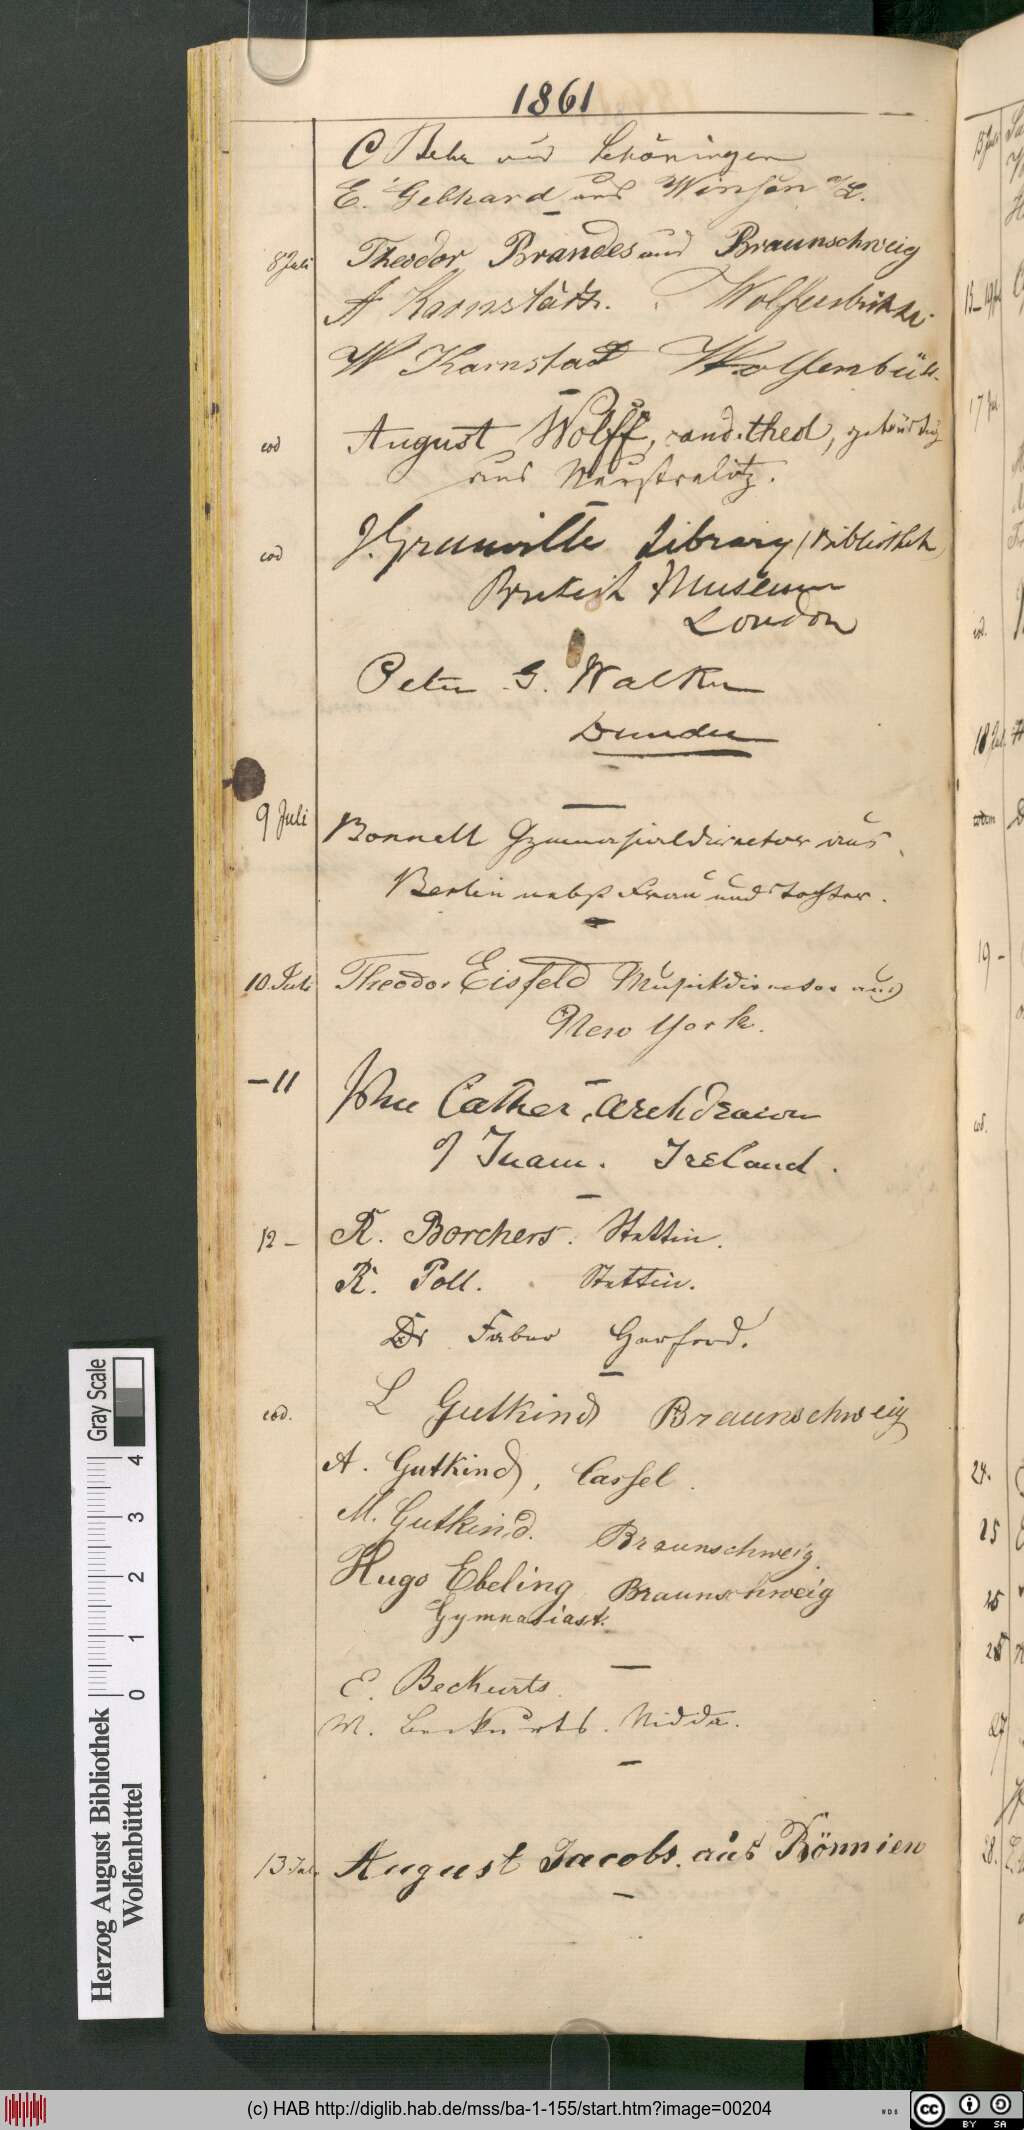 1861
C Behr aus Schöningen
E. Gebhard aus Winsen a/L.
8 Juli Theodor Brandes aus Braunschweig
A Karnstädt. Wolfenbüttel
W Karnstadt Wolfenbütt.
eod August Wolff, cand. theol, gebürtig
aus Neustrelitz.
eod J. Grenville Library (Bibliothek)
British Museum
London
Peter G. Walker
Dundee
9 Juli Bonnell Gymnasialdirector aus
Berlin nebst Frau und Tochter.
10. Juli Theodor Eisfeld Musikdirector aus
New York.
— 11 John Cather, Archdeacon
of Tuam. Ireland.
12 — R. Borchers. Stettin.
R. Poll. Stettin.
Dr Faber
eod. L Gutkind Braunschweig
A. Gutkind, Cassel.
M. Gutkind. Braunschweig.
Hugo Ebeling Braunschweig
Gymnasiast.
E. Beckurts.
W. Beckurts. Nidda.
13 Juli August Jacobs. aus
Gray Scale
0 1 2 3 4
Herzog August Bibliothek
Wolfenbüttel
(c) HAB http://diglib.hab.de/mss/ba-1-155/start.htm?image=00204
cc BY SA